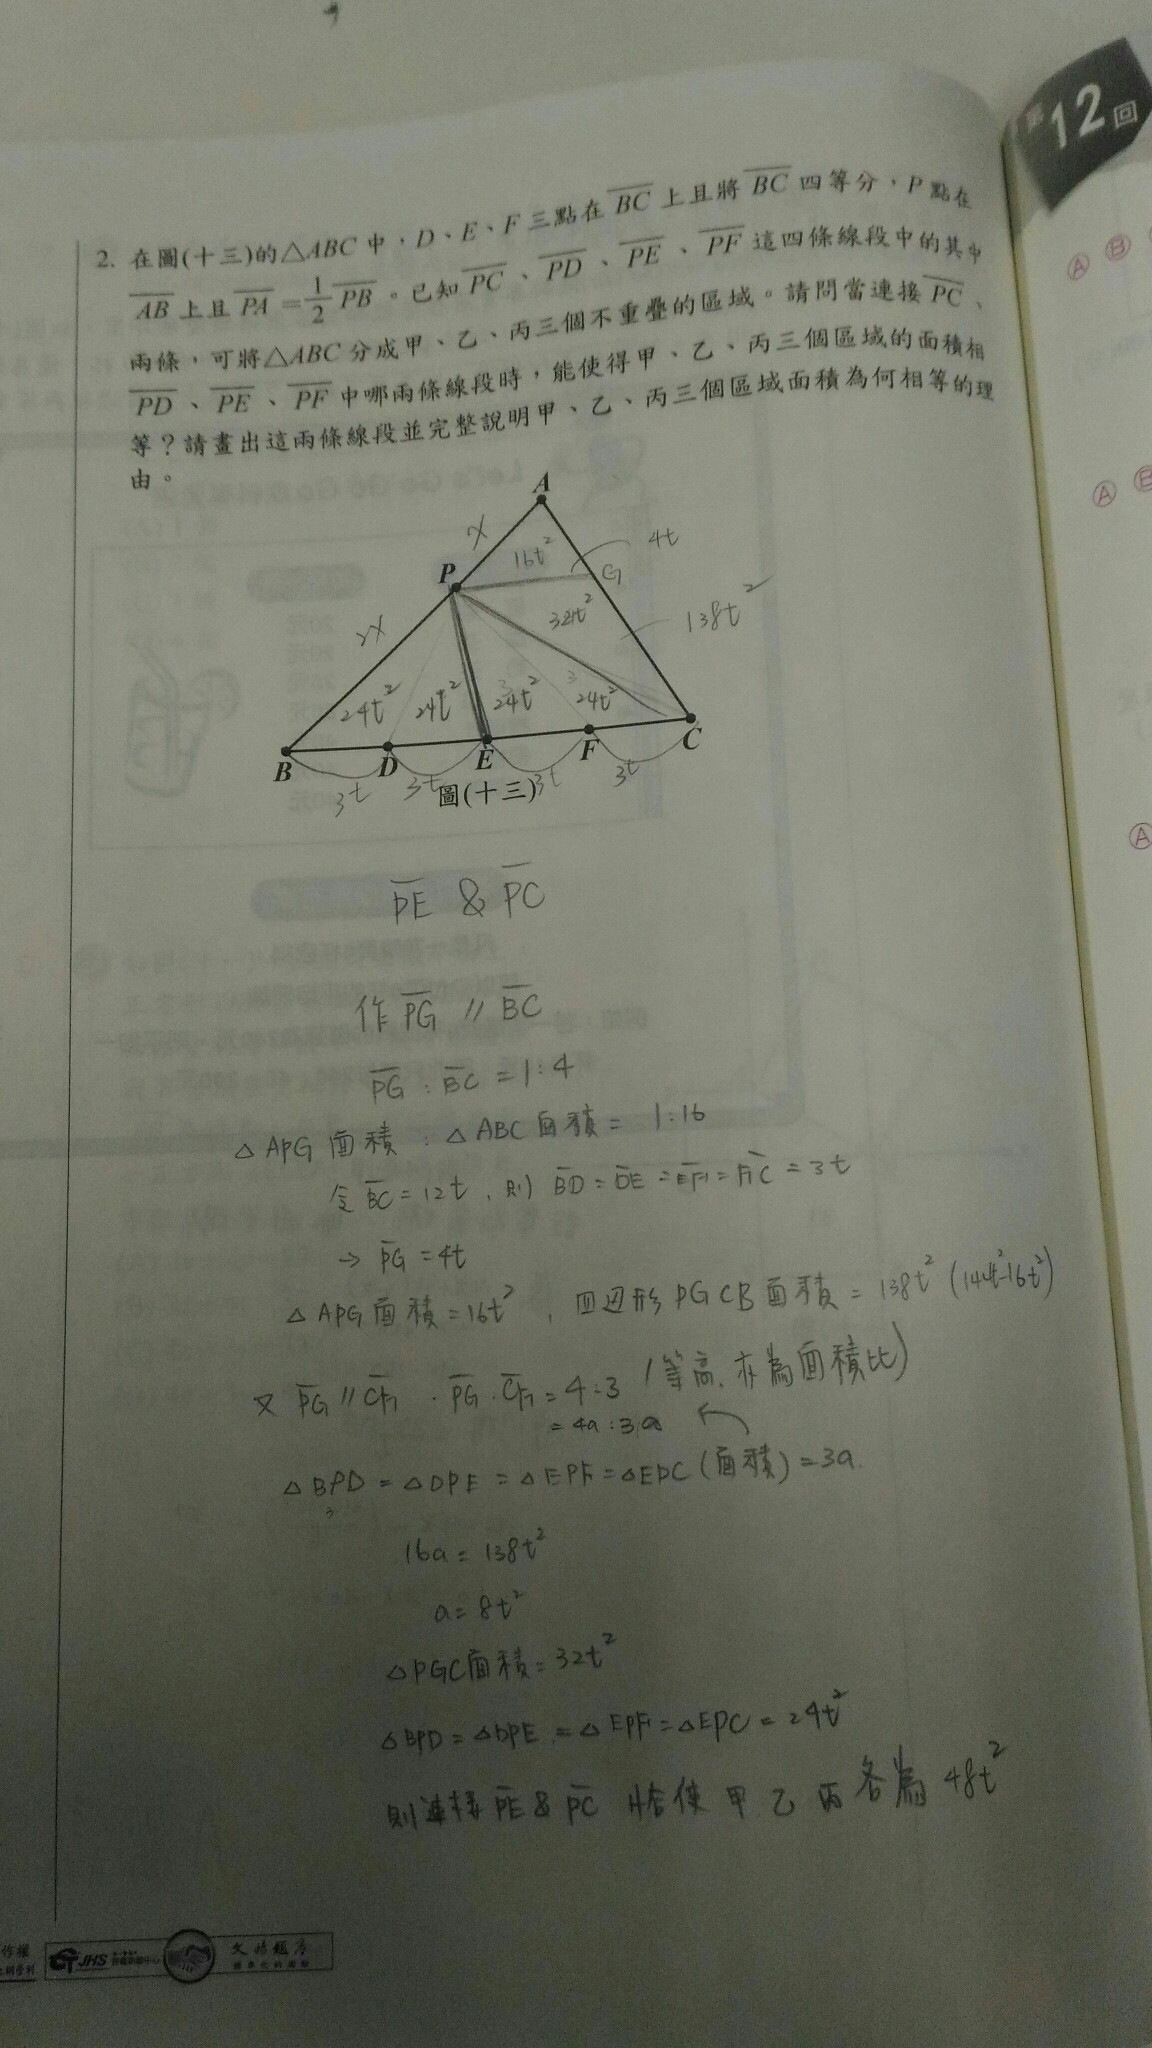 第12回
2. 在圖(十三)的△ABC中，D、E、F三點在BC上且將BC四等分，P點在
AB上且PA=1/2PB。已知PC、PD、PE、PF這四條線段中的其中
兩條，可將△ABC分成甲、乙、丙三個不重疊的區域。請問當連接PC、
PD、PE、PF中哪兩條線段時，能使得甲、乙、丙三個區域的面積相
等？請畫出這兩條線段並完整說明甲、乙、丙三個區域面積為何相等的理
由。
A
X
16t²
4t
P
G
32t²
138t²
2X
24t²
24t²
24t²
24t²
B
D
E
F
C
3t
3t
3t
3t
圖(十三)
PE & PC
作PG // BC
PG : BC = 1:4
△APG面積 : △ABC面積 = 1:16
令BC=12t，則BD=DE=EF=FC=3t
→ PG=4t
△APG面積=16t²，四邊形PGCB面積=138t²(144t²-16t²)
又PG//CF，PG:CF=4:3(等高，亦為面積比)
=4a:3a
△BPD=△DPE=△EPF=△EPC(面積)=3a
16a=138t²
a=8t²
△PGC面積=32t²
△BPD=△DPE=△EPF=△EPC=24t²
則連接PE & PC 恰使甲乙丙各為48t²
Ⓐ Ⓑ
Ⓐ Ⓑ
Ⓐ
作權
JHS